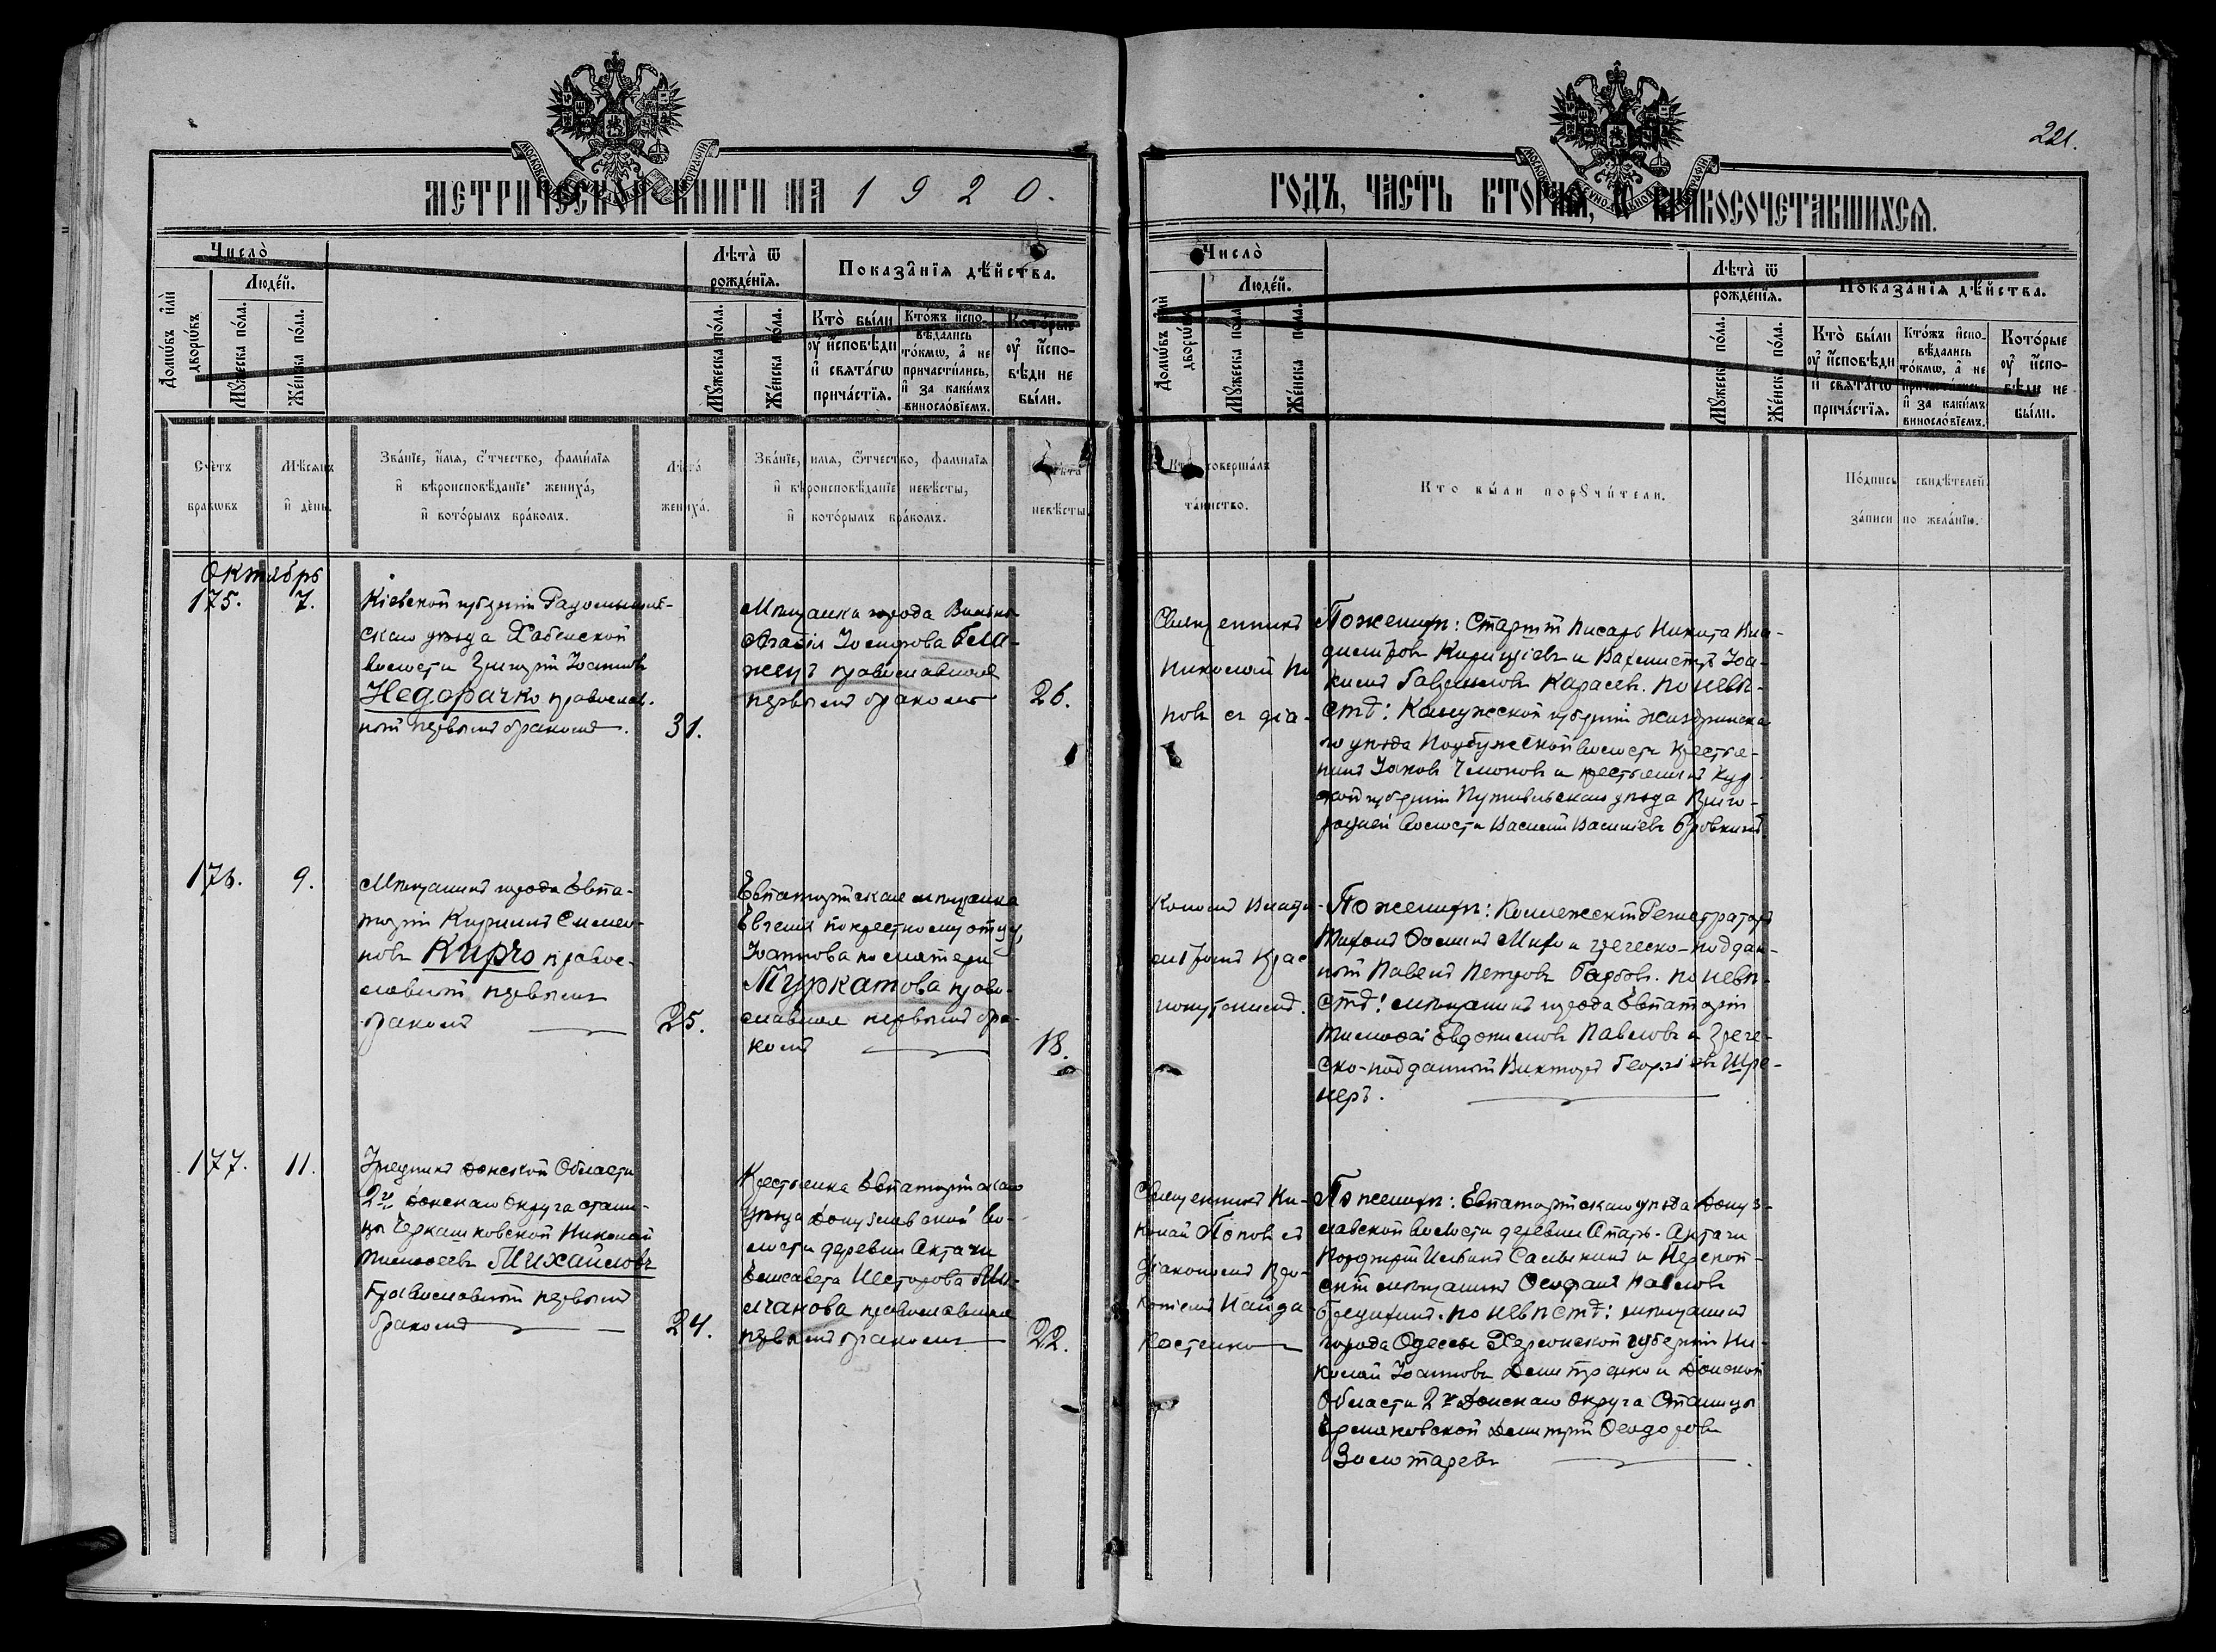 221.
МЕТРИЧЕСКОЙ КНИГИ НА 1920.
ГОДЪ, ЧАСТЬ ВТОРАЯ, О БРАКОСОЧЕТАВШИХСЯ.
Число̀
Людéй.
Домѡ́въ и҆лѝ дворѡ́въ
Мꙋ́жеска по́ла.
Жéнска по́ла.
Лѣта̀ ѿ рождéнїѧ.
Мꙋ́жеска по́ла.
Жéнска по́ла.
Показа̑нїѧ дѣ́йства.
Кто̀ бы́ли ᲂу҆ и҆́сповѣди и҆ свѧта́гѡ прича́стїѧ.
Кто́жъ и҆спо-вѣ́дались то́кмѡ, а҆ не причасти́лись, и҆ за каки́мъ винослóвїемъ.
Кото́рые ᲂу҆ и҆́спо-вѣди не бы́ли.
Счéтъ бракѡвъ
Мѣ́сѧцъ и҆ дéнь.
Зва́нїе, и҆́мѧ, ѻ҆́тчество, фами́лїѧ
и҆ вѣроисповѣ́данїе жениха̀,
и҆ кото́рымъ бра́комъ.
Лѣта̀ жениха̀.
Зва́нїе, и҆́мѧ, ѻ҆́тчество, фами́лїѧ
и҆ вѣроисповѣ́данїе невѣ́сты,
и҆ кото́рымъ бра́комъ.
Лѣта̀ невѣ́сты
Кто̀ соверша́лъ та́инство.
Кто бы́ли порꙋчи́тели.
По́дпись свидѣ́телей
за́писи по жела́нїю.
Октябрь
175. 7.
Кіевской губерніи Радомысль-
скаго уѣзда Хабенской
волости Григорій Іоанновъ
Недорачко православ-
ный первымъ бракомъ. 31.
Мѣщанка города Вильны
Агафія Іосифова
православная
первымъ бракомъ 26.
Священникъ
Николай По-
повъ съ діа-
По женихѣ: Старшій писарь Никита Вла-
диміровъ и Вахмистръ Іоа-
кимъ Гавриловъ Карасевъ. по невѣ-
стѣ: Калужской губерніи Жиздринска-
го уѣзда Подбужской волости крестья-
нинъ Іаковъ и крестьянинъ Кур-
ской губерніи Путивльскаго уѣзда
волости Василій Василіевъ Бровкинъ
176. 9.
Мѣщанинъ города Евпа-
торіи Кириллъ Симео-
новъ Кирчо правос-
лавный первымъ
бракомъ 25.
Евпаторійская мѣщанка
Евгенія по крестному отцу,
Іоаннова по матери
Муркатова право-
славная первымъ бра-
комъ 18.
По женихѣ: Коллежскій Регистраторъ
греческо-поддан-
ный Павелъ Петровъ по невѣ-
стѣ: мѣщанинъ города Евпаторіи
Тимофей Евдокимовъ Павловъ и грече-
ско-подданный Викторъ Георгіевъ Шре-
неръ.
177. 11.
Урядникъ Донской Области
2го Донскаго Округа стани-
цы Николай
Тимофеевъ Михайловъ
Православный первымъ
бракомъ 24.
Крестьянка Евпаторійскаго
уѣзда Донузлавской во-
лости деревни Актачи
Елисавета Несторова Мо-
лчанова православная
первымъ бракомъ 22.
Священникъ Ни-
колай Поповъ съ
діакономъ Про-
копіемъ Найда
Костенко
По женихѣ: Евпаторійскаго уѣзда Донуз-
лавской волости деревни Атаръ-Актачи
Порфирій и Перекоп-
скій мѣщанинъ Ѳеофанъ Павловъ
по невѣстѣ: мѣщанинъ
города Одессы Херсонской губерніи Ни-
колай Іоанновъ Димитренко и Донской
Области 2го Донскаго Округа Станицы
Ермаковской Димитрій Ѳеодоровъ
Золотаревъ